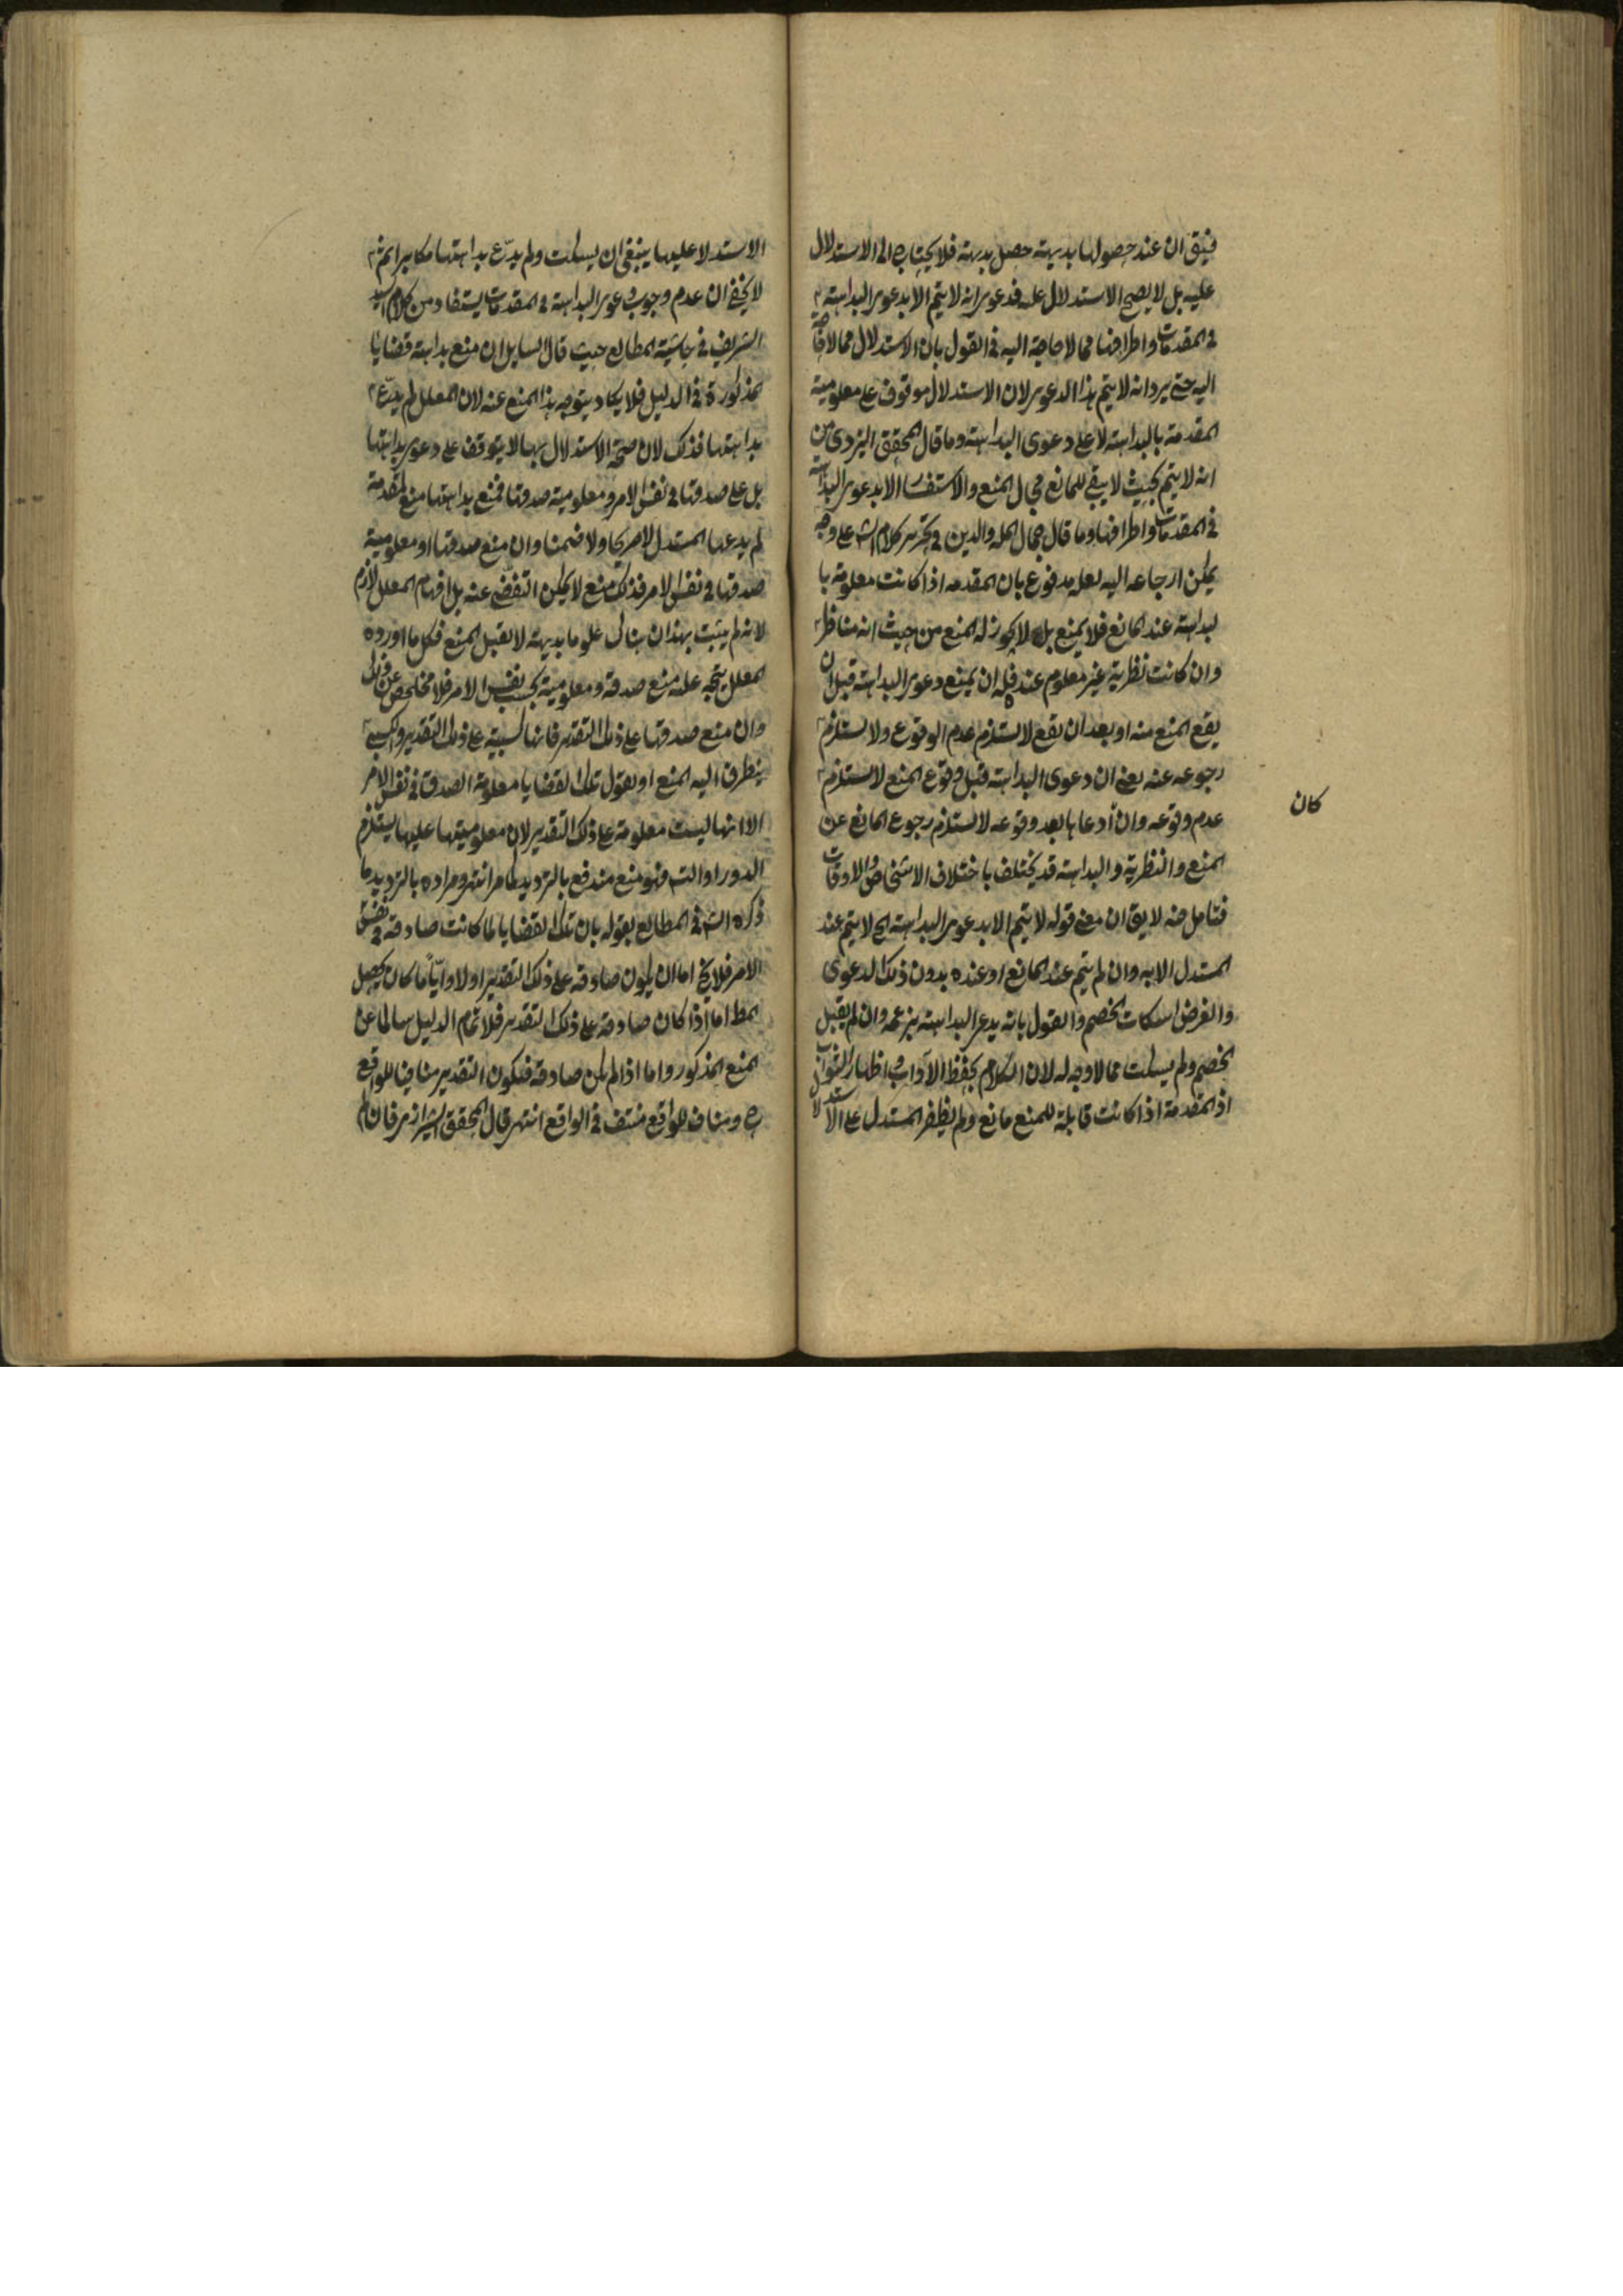 فيق ان عند حصولها بديهية حصل بديهة فلا يحتاج الى الاستدلال
عليه بل لا يصح الاستدلال عليه فدعوى انه لا يتم الا بدعوى البداهة
فى المقدمات واطرافها مما لا حاجة اليه فى القول بان الاستدلال مما لا حاجة
اليه حتى يرد انه لا يتم بهذا الدعوى لان الاستدلال موقوف على معلومية
المقدمة بالبداهة لا على دعوى البداهة وما قال المحقق اليزدى من
انه لا يتم بحيث لا يبقى للمانع مجال المنع والاستفسار الا بدعوى البداهة
فى المقدمات واطرافها وما قال جمال المله والدين فى تحرير كلام الش على وجه
يمكن ارجاعه اليه لعله مدفوع بان المقدمه اذا كانت معلومة با
لبداهة عند المانع فلا يمنع بل لا يجوز له المنع من حيث انه مناظر
وان كانت نظرية غير معلوم عنده فله ان يمنع دعوى البداهة قبل ان
يقع المنع منه او بعد ان يقع لا يستلزم عدم الوقوع ولا يستلزم
رجوعه عنه يعنى ان دعوى البداهة قبل وقوع المنع لا يستلزم
عدم وقوعه وان ادعاها بعد وقوعه لا يستلزم رجوع المانع عن
كان
المنع والنظرية والبداهة قد يختلف باختلاف الاشخاص والاوقات
فتامل منه لا يق ان معنى قوله لا يتم الا بدعوى البداهة الى لا يتم عند
المستدل الا به وان لم يتم عند المانع او عنده بدون ذلك الدعوى
والغرض اسكات الخصم والقول بانه يدعى البداهة بزعمه وان لم يقبل
الخصم ولم يسكت مما لا وجه له لان الكلام بحفظ الآداب و اظهار الثواب
اذ المقدمة اذا كانت قابلة للمنع مانع ولم يظفر المستدل على الاستدلا
الاستدلا عليها ينبغى ان يسكت ولم يدّع بداهتها مكابرا ثم
لا يخفى ان عدم وجوب دعوى البداهة فى المقدمات يستفاد من كلام السيد
الشريف فى حاشية المطالع حيث قال السايل ان منع بداهة قضايا
مذكورة فى الدليل فلا يكاد يتوجه هذا المنع عنه لان المعلل لم يدّع
بداهتها فذلك لان صحة الاستدلال بها لا يتوقف على دعوى بداهتها
بل على صدقها فى نفس الامر و معلومية صدقها فمنع بداهتها منع لمقدمة
لم يدعها المستدل لا صريحا ولا ضمنا وان منع صدقها او معلومية
صدقها فى نفس الامر فذلك منع لا يمكن التفصّى عنه بل افهام المعلل لازم
لانه لم يثبت بهذا ان هناك علوما بديهة لا تقبل المنع فكل ما اورده
المعلل يتجه عليه منع صدقه و معلومية بحسب نفس الامر فلا مخلص عن ذلك
وان منع صدقها على ذلك التقدير فانها كسبية على ذلك التقدير و كسبى
يتطرق اليه المنع او يقول تلك القضايا معلومة الصدق فى نفس الامر
الا انها ليست معلومة على ذلك التقدير لان معلوميتها عليها يستلزم
الدور او الت فهو منع مندفع بالترديد كما مر انتهى ومراده بالترديد ما
ذكره الش فى المطالع بقوله بان تلك القضايا لما كانت صادقة فى نفس
الامر فلا يخ اما ان يكون صادقة على ذلك التقدير او لا وايّا ما كان يحصل
المط اما اذا كان صادقة على ذلك التقدير فلا تمام الدليل سالما عن
المنع المذكور واما اذا لم يكن صادقة فيكون التقدير منافيا للواقع
ح ومناف للواقع منتف فى الواقع انتهى قال المحقق الشيرازى فان لم